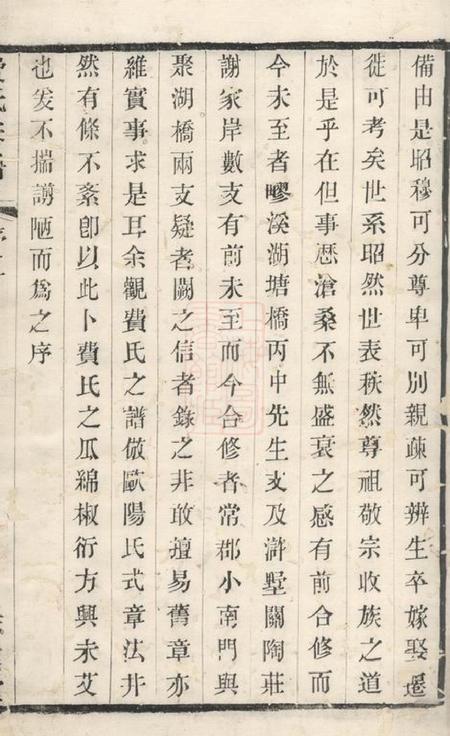 備由是昭穆可分尊卑可別親疎可辨生卒嫁娶遷
徙可考矣世系昭然世表秩然尊祖敬宗收族之道
於是乎在但事厯滄桑不無盛衰之感有前合修而
今未至者疁溪湖塘橋丙中先生支及滸墅關陶莊
謝家岸數支有前未至而今合修者常郡小南門與
聚湖橋兩支疑者闕之信者錄之非敢擅易舊章亦
維實事求是耳余觀費氏之譜倣歐陽氏式章法井
然有條不紊卽以此卜費氏之瓜綿椒衍方興未艾
也爰不揣謭陋而爲之序